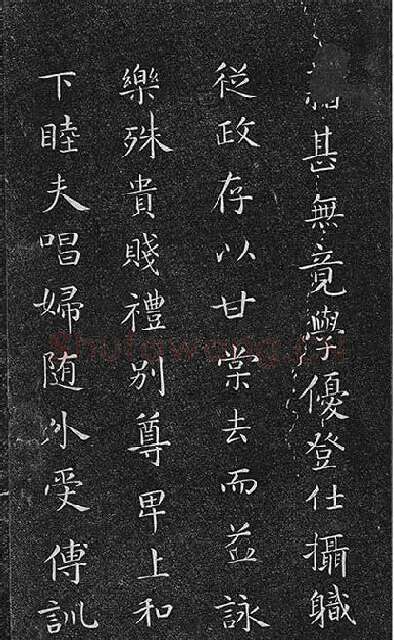 籍甚無竟學優登仕攝職
從政存以甘棠去而益詠
樂殊貴賤禮別尊卑上和
下睦夫唱婦随外受傅訓